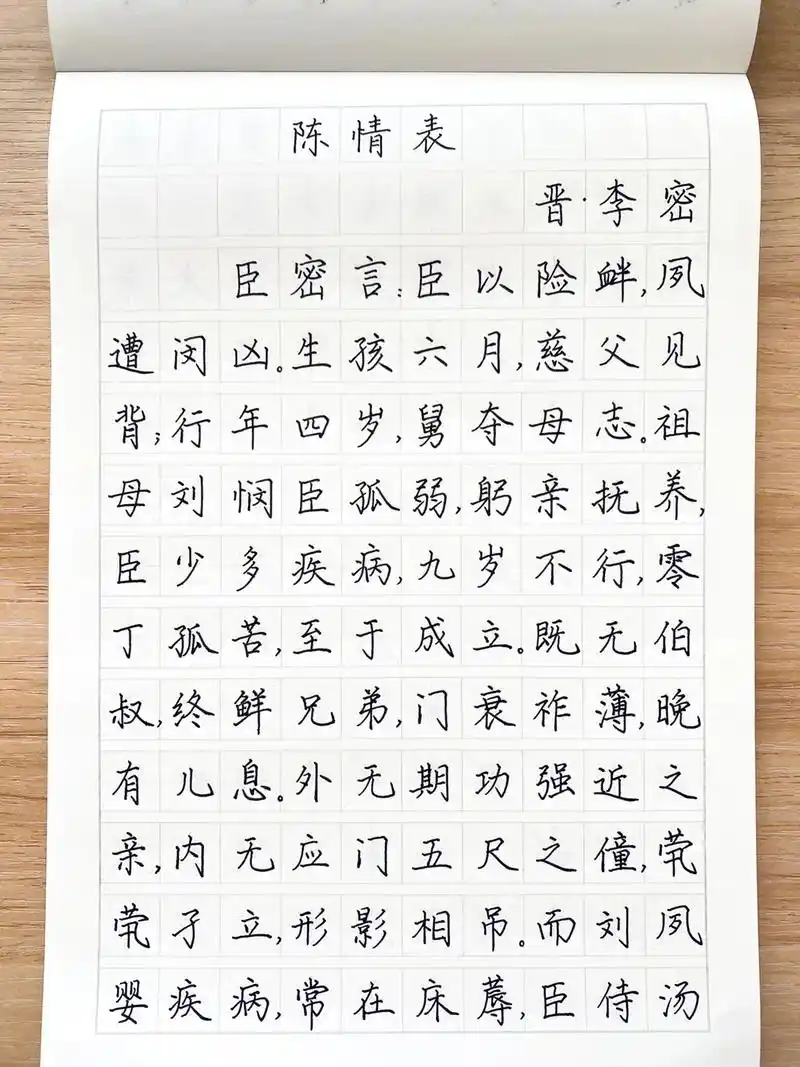 陈情表
晋·李密
臣密言:臣以险衅,夙
遭闵凶。生孩六月,慈父见
背;行年四岁,舅夺母志。祖
母刘悯臣孤弱,躬亲抚养,
臣少多疾病,九岁不行,零
丁孤苦,至于成立。既无伯
叔,终鲜兄弟,门衰祚薄,晚
有儿息。外无期功强近之
亲,内无应门五尺之僮,茕
茕孑立,形影相吊。而刘夙
婴疾病,常在床蓐,臣侍汤